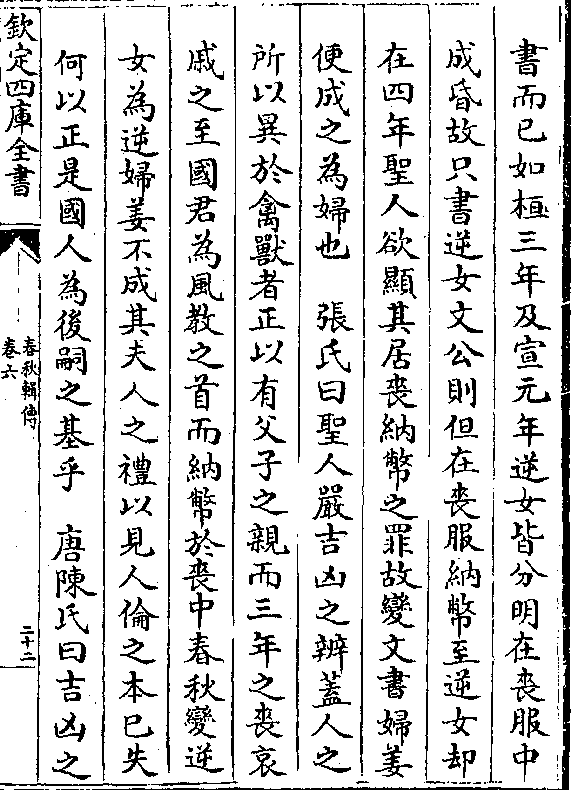 書而已如桓三年及宣元年逆女皆分明在喪服中
成昏故只書逆女文公則但在喪服納幣至逆女却
在四年聖人欲顯其居喪納幣之罪故變文書婦姜
便成之為婦也　張氏曰聖人嚴吉凶之辨蓋人之
所以異於禽獸者正以有父子之親而三年之喪哀
戚之至國君為風教之首而納幣於喪中春秋變逆
女為逆婦姜不成其夫人之禮以見人倫之本已失
何以正是國人為後嗣之基乎　唐陳氏曰吉凶之
欽定四庫全書
春秋輯傳
卷六
二十二